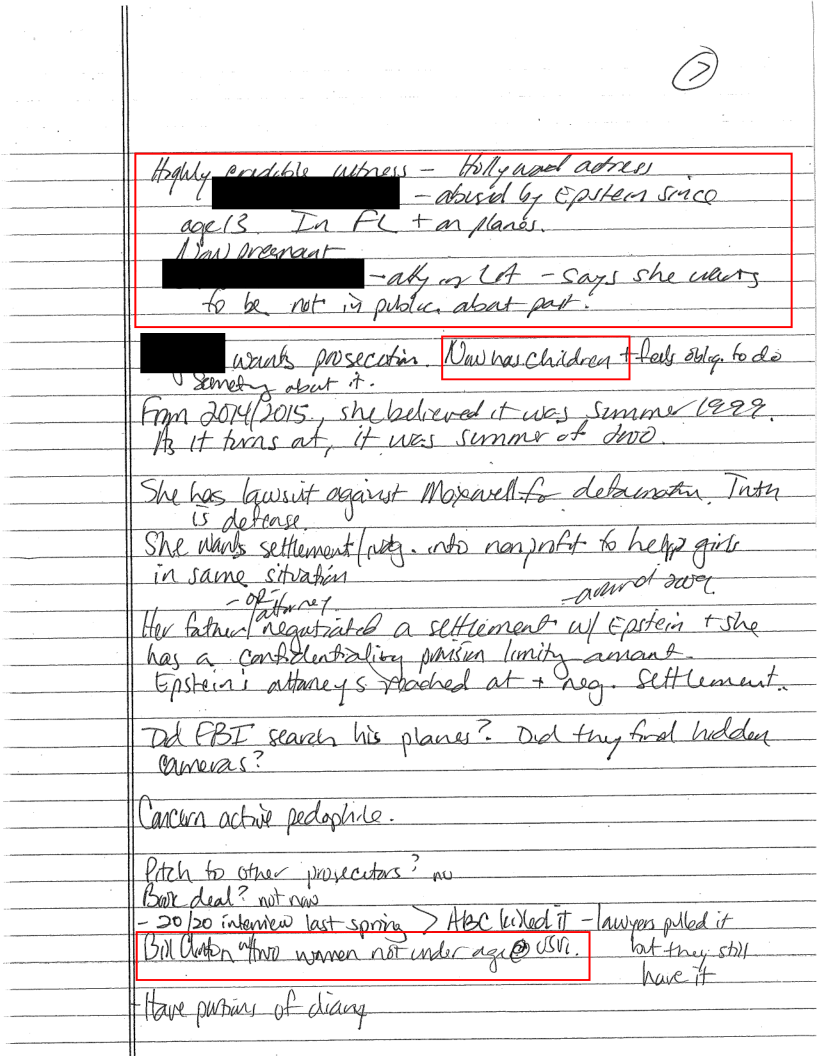 7
Highly credible witness – Hollywood actress
– abused by Epstein since
age 13. In FL + on planes.
Now pregnant
– atty in LA – says she wants
to be not in public about past.
wants prosecution. Now has children + feels oblig. to do
something about it.
From 2014/2015, she believed it was summer 1999.
As it turns out, it was summer of 2000.
She has lawsuit against Maxwell for defamation. Truth
is defense.
She wants settlement / into nonprofit to help girls
in same situation
– or attorney
– around 2009.
Her father / negotiated a settlement w/ Epstein + she
has a confidentiality provision limiting amount.
Epstein's attorneys reached out + neg. settlement.
Did FBI search his planes? Did they find hidden
cameras?
Concern active pedophile.
Pitch to other prosecutors? no
Book deal? not now
– 20/20 interview last spring > ABC killed it – lawyers pulled it
but they still
have it
Bill Clinton w/ two women not under age @ USVI.
– Have portions of diary